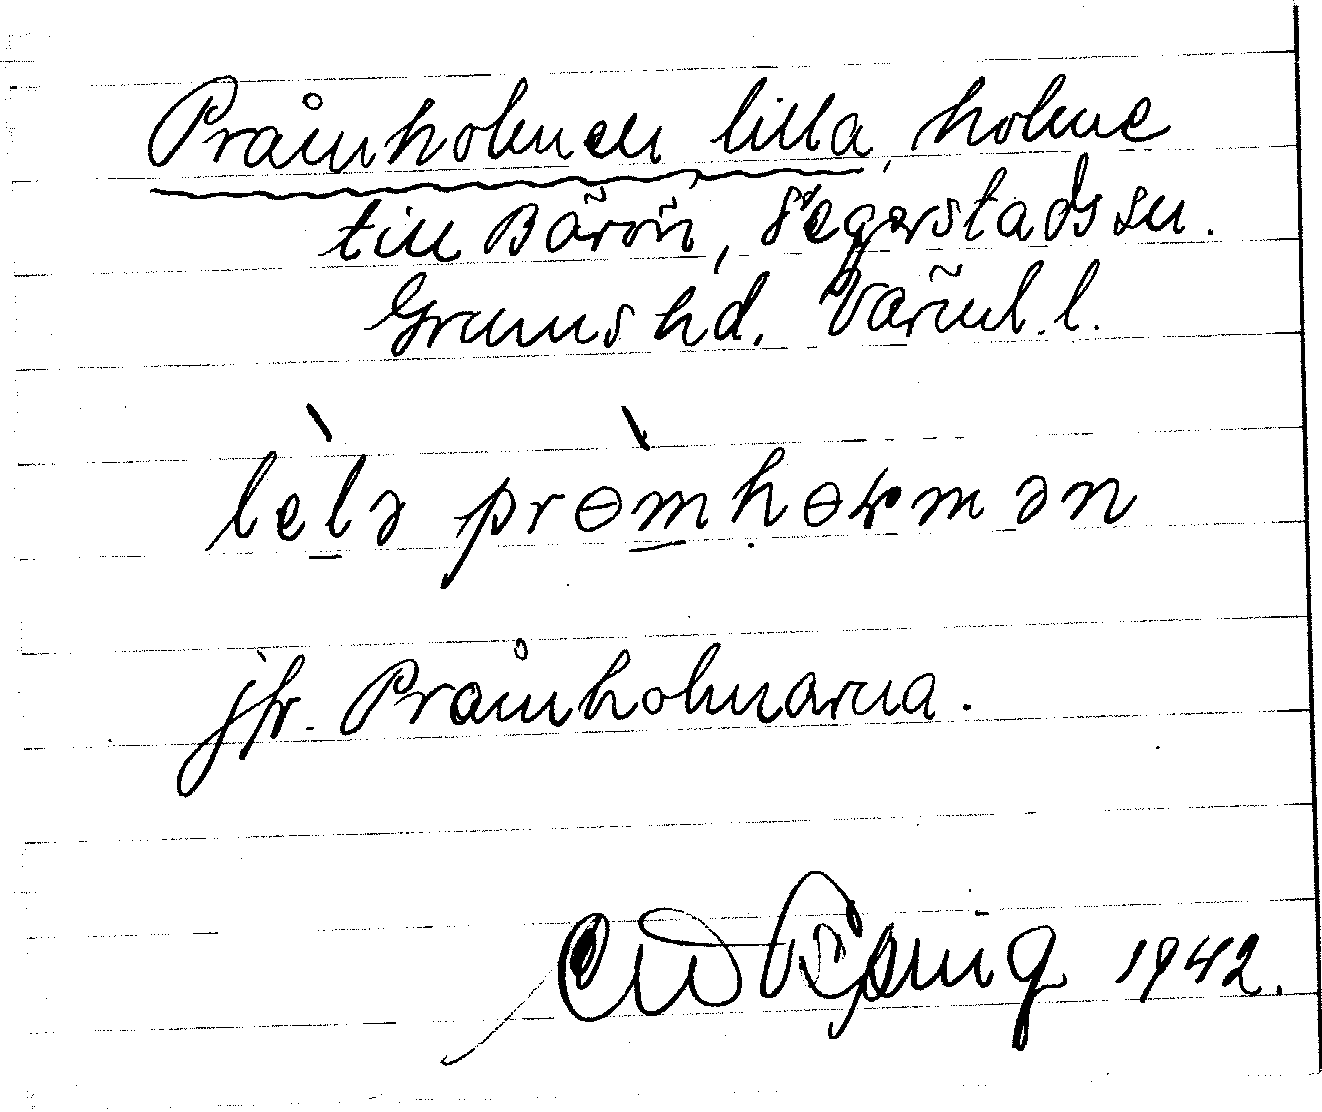 Pråmholmen lilla, holme
till Bärön, Segerstads sn.
Grums hd. Värml. l.
lèlə prɵ̀mhɵɽmən
jfr. Pråmholmarna.
1942.